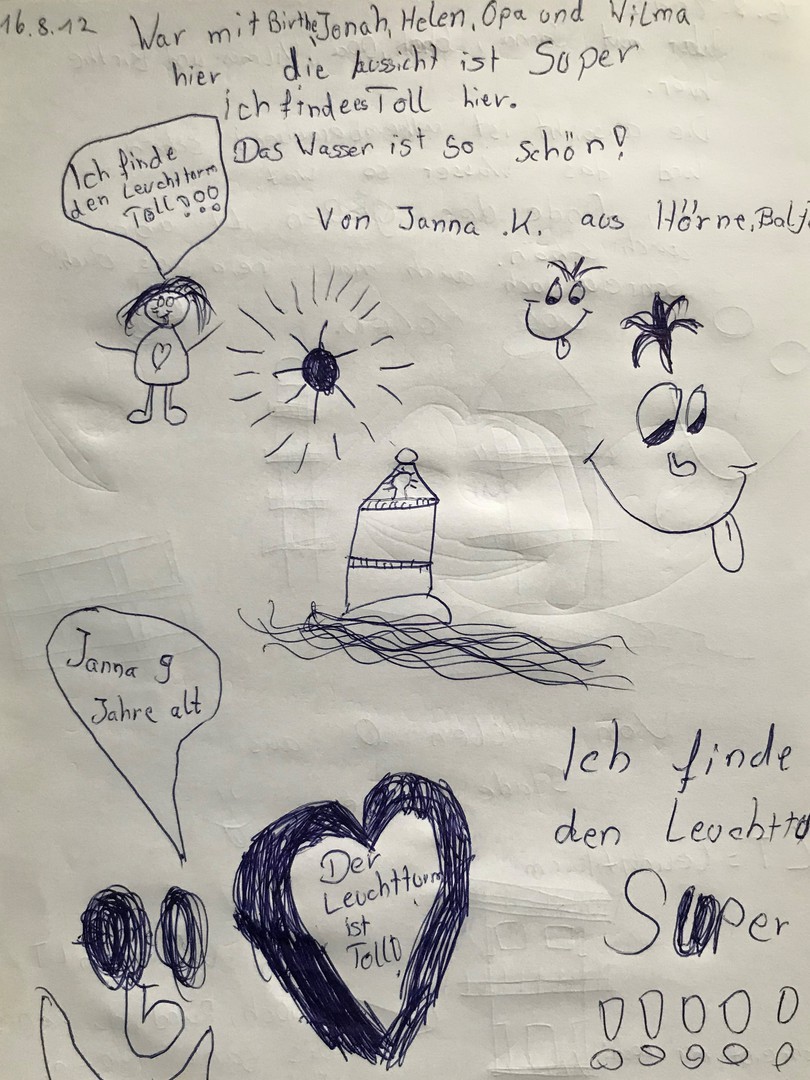 16.8.12 War mit Birthe, Jonah, Helen, Opa und Wilma
hier die Aussicht ist Super
ich finde es Toll hier.
Das Wasser ist so schön!
Von Janna .K. aus Hörne, Balj
Ich finde
den Leuchtturm
Toll!!!
Janna 9
Jahre alt
Der
Leuchtturm
ist
Toll!
Ich finde
den Leuchttu
Super
!!!!!